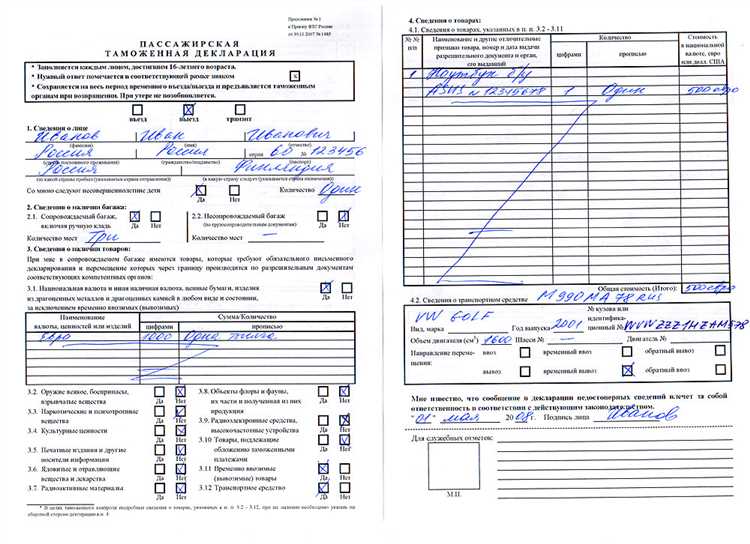 Приложение № 1
к Приказу ФТС России
от 30.11.2007 № 1485
ПАССАЖИРСКАЯ
ТАМОЖЕННАЯ ДЕКЛАРАЦИЯ
• Заполняется каждым лицом, достигшим 16-летнего возраста.
• Нужный ответ помечается в соответствующей рамке знаком x
• Сохраняется на весь период временного въезда/выезда и предъявляется таможенным
органам при возвращении. При утере не возобновляется.
въезд выезд транзит
1. Сведения о лице
Иванов Иван Иванович
(фамилия) (имя) (отчество)
Россия Россия серия 60 № 123456
(страна постоянного проживания) (гражданство/подданство) (паспорт)
Россия Финляндия
(из какой страны прибыл (указывается страна отправления)) (в какую страну следует (указывается страна назначения))
Со мною следуют несовершеннолетние дети Да Нет Количество Один
2. Сведения о наличии багажа:
2.1. Сопровождаемый багаж,
включая ручную кладь Да Нет
Количество мест Три
2.2. Несопровождаемый багаж
(по грузосопроводительным документам) Да Нет
Количество мест —
3. Сведения о наличии товаров:
При мне и в сопровождаемом багаже имеются товары, которые требуют обязательного письменного
декларирования и перемещение которых через границу производится по разрешительным документам
соответствующих компетентных органов:
3.1. Национальная валюта и иная наличная валюта, ценные бумаги, изделия
из драгоценных металлов и драгоценных камней в любом виде и состоянии, Да Нет
за исключением временно ввозимых (вывозимых)
Наименование Сумма/Количество
валюты, ценностей или изделий цифрами прописью
Евро 1000 Одна тысяча
3.2. Оружие всякое, боеприпасы,
взрывчатые вещества Да Нет
3.3. Наркотические и психотропные
вещества Да Нет
3.4. Культурные ценности Да Нет
3.5. Печатные издания и другие
носители информации Да Нет
3.6. Ядовитые и отравляющие
вещества и лекарства Да Нет
3.7. Радиоактивные материалы Да Нет
3.8. Объекты флоры и фауны,
их части и полученная из них
продукция Да Нет
3.9. Радиоэлектронные средства,
высокочастотные устройства Да Нет
3.10 Товары, подлежащие
обложению таможенными
платежами Да Нет
3.11 Временно ввозимые
(вывозимые) товары Да Нет
3.12 Транспортное средство Да Нет
* В целях таможенного контроля подробные сведения о товарах, указанных в п. п. 3.2 - 3.12, при их наличии необходимо указать на
оборотной стороне декларации в п. 4
4. Сведения о товарах:
4.1. Сведения о товарах, указанных в п. п. 3.2 - 3.11
№ № п/п Наименование и другие отличительные признаки товара, номер и дата выдачи разрешительного документа и орган, его выдавший Количество цифрами прописью Стоимость в национальной валюте, евро или долл. США
1 Ноутбук б/у
ASUS n 12345678 1 Один 500 евро
Общая стоимость (Итого): 500 евро
4.2. Сведения о транспортном средстве М990МА 78 RUS
VW GOLF
Вид, марка Год выпуска 2001 № кузова или идентификационный №
Объем двигателя (см³) 1600 Шасси № — Двигатель № —
Направление перемещения: ввоз временный ввоз обратный вывоз
вывоз временный вывоз обратный ввоз
Мне известно, что сообщение в декларации недостоверных сведений влечет за собой
ответственность в соответствии с действующим законодательством.
"01" мая 2008г. Подпись лица Иванов
Для служебных отметок:
М.П.